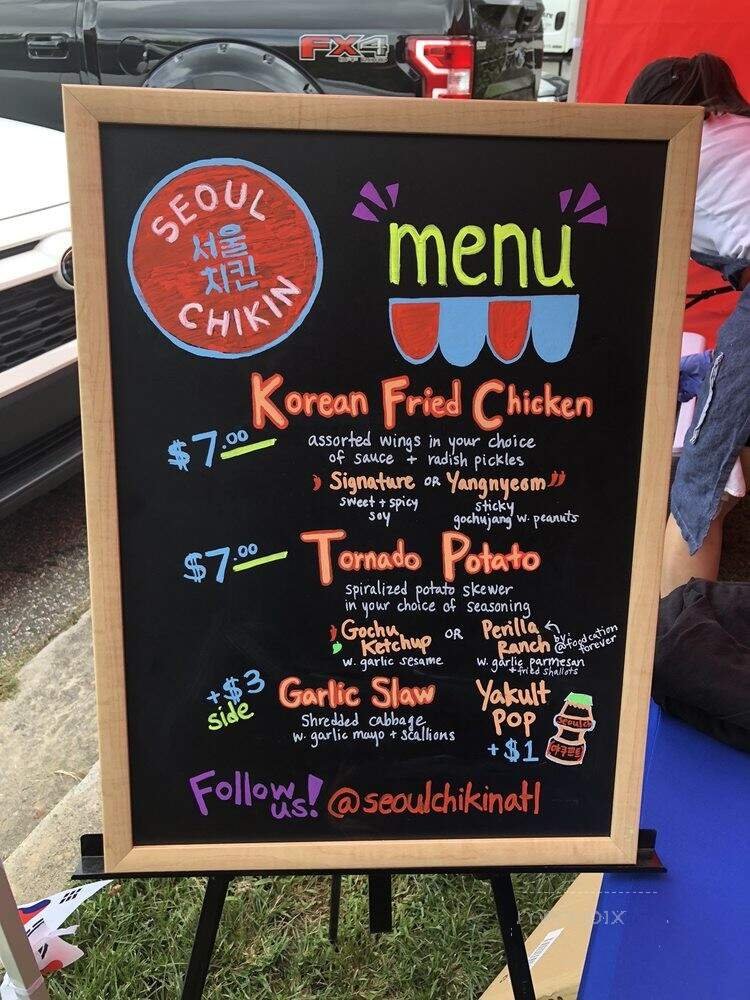 FX4
SEOUL
서울
치킨
CHIKIN
menu
Korean Fried Chicken
$7.00
assorted wings in your choice
of sauce + radish pickles
Signature OR Yangnyeom
sweet + spicy
soy
sticky
gochujang w. peanuts
$7.00
Tornado Potato
spiralized potato skewer
in your choice of seasoning
Gochu
Ketchup
w. garlic sesame
OR
Perilla
Ranch
by:
@foodcation
forever
w. garlic parmesan
+ fried shallots
+$3
side
Garlic Slaw
Shredded cabbage
w. garlic mayo + scallions
Yakult
POP
+$1
야쿠르트
Follow
us!
@seoulchikinatl